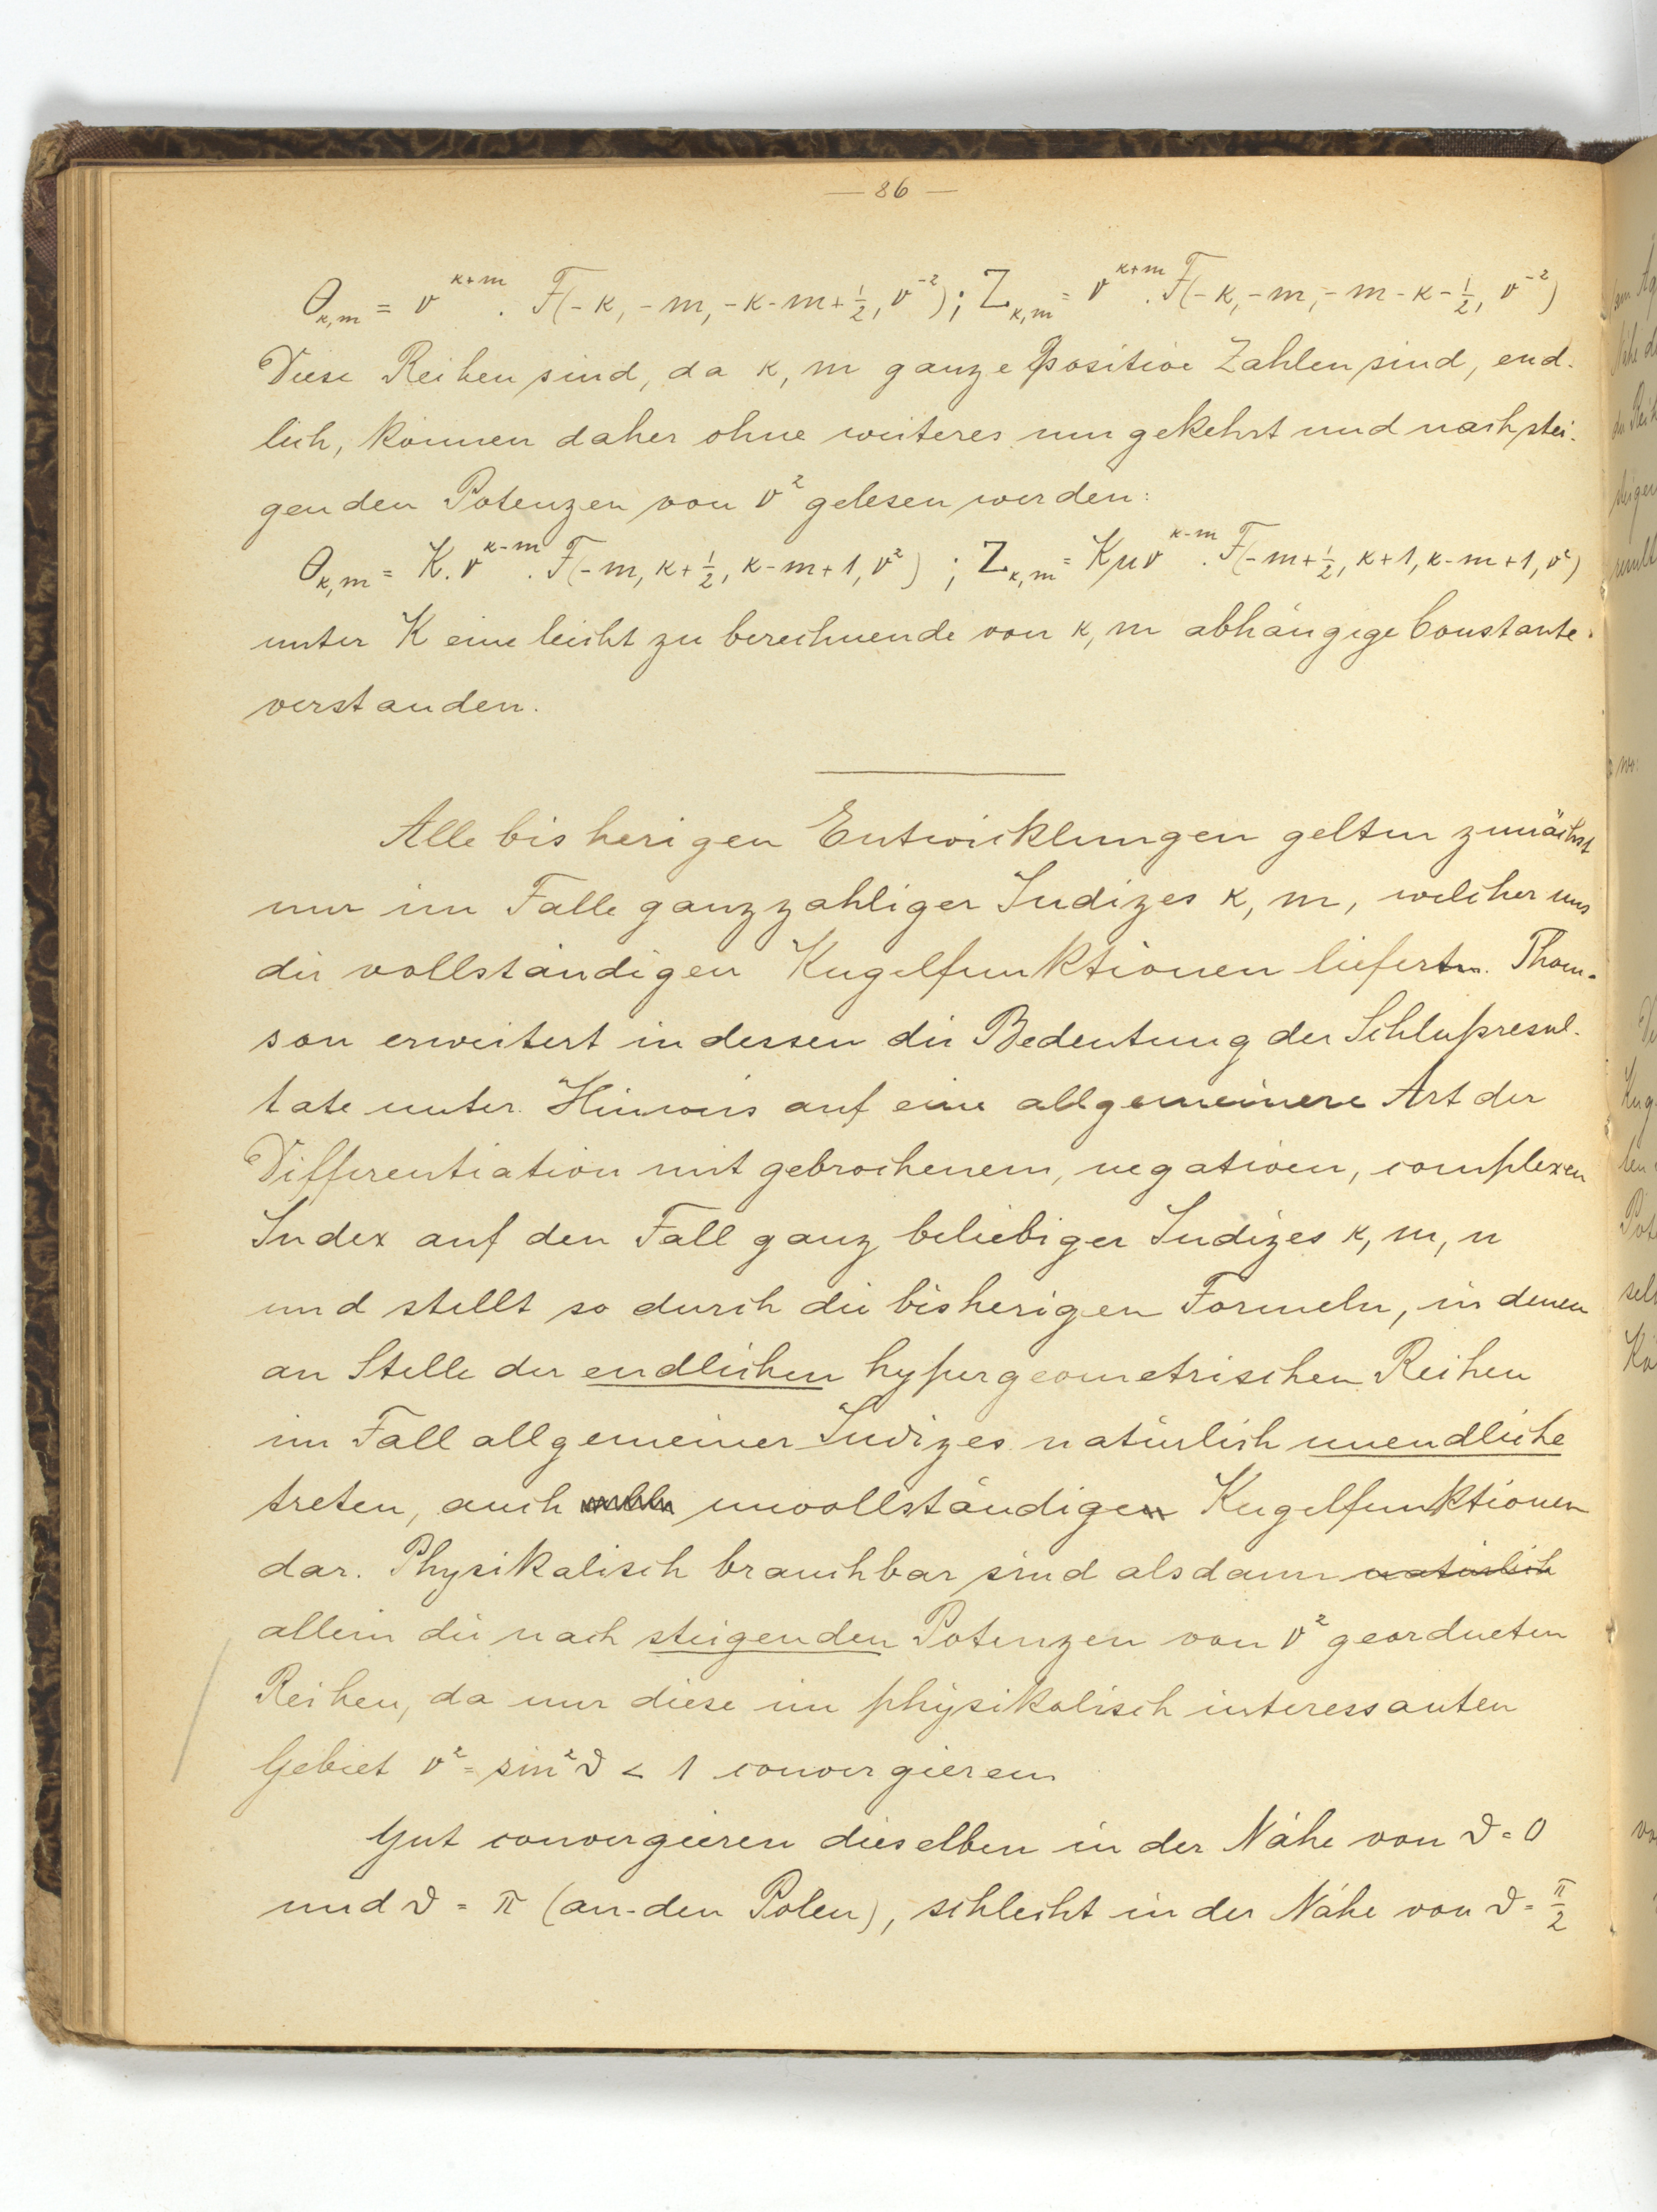 — 86 —
Θ_{κ,m} = v^{κ+m} . F(-κ, -m, -κ-m+½, v^{-2}) ; Z_{κ,m} = v^{κ+m} . F(-κ, -m, -m-κ-½, v^{-2})
Diese Reihen sind, da κ, m ganze positive Zahlen sind, end-
lich, können daher ohne weiteres umgekehrt und nach stei-
genden Potenzen von v² gelesen werden:
Θ_{κ,m} = K. v^{κ-m} . F(-m, κ+½, κ-m+1, v²) ; Z_{κ,m} = Kμv^{κ-m} . F(-m+½, κ+1, κ-m+1, v²)
unter K eine leicht zu berechnende von κ, m abhängige Constante
verstanden.
Alle bisherigen Entwicklungen gelten zunächst
nur im Falle ganzzahliger Indizes κ, m, welcher uns
die vollständigen Kugelfunktionen liefert. Thom-
son erweitert indessen die Bedeutung der Schlußresul-
tate unter Hinweis auf eine allgemeinere Art der
Differentiation mit gebrochenem, negativem, complexen
Index auf den Fall ganz beliebiger Indizes κ, m, n
und stellt so durch die bisherigen Formeln, in denen
an Stelle der endlichen hypergeometrischen Reihen
im Fall allgemeiner Indizes natürlich unendliche
treten, auch unvollständige Kugelfunktionen
dar. Physikalisch brauchbar sind alsdann natürlich
allein die nach steigenden Potenzen von v² geordneten
Reihen, da nur diese im physikalisch interessanten
Gebiet v² = sin²ϑ < 1 convergieren.
Gut convergieren dieselben in der Nähe von ϑ = 0
und ϑ = π (an den Polen), schlecht in der Nähe von ϑ = π/2